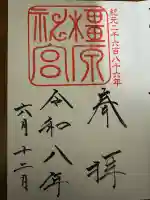 紀元二千六百八十六年
奉拝
橿原神宮
令和八年
六月十二日